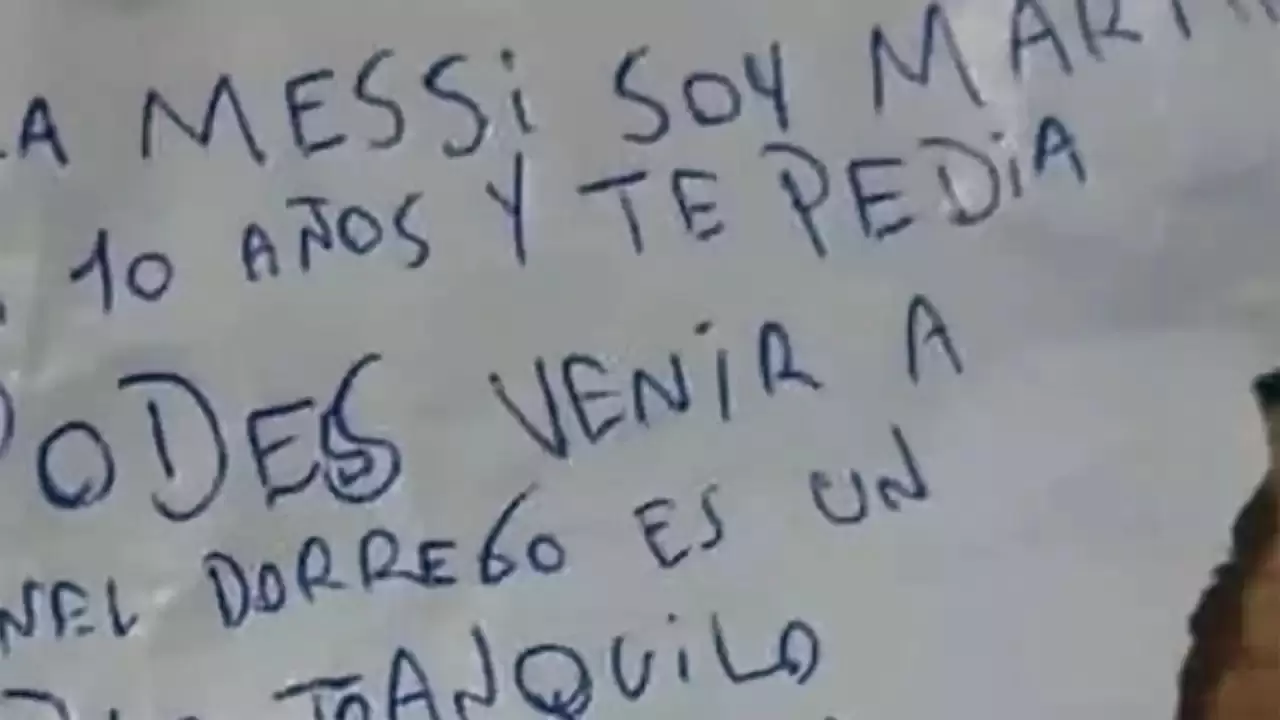 LA MESSi SOY MARTI
10 AÑOS Y TE PEDiA
PODES VENiR A
NEL DORREGO ES UN
TRANQUiLO